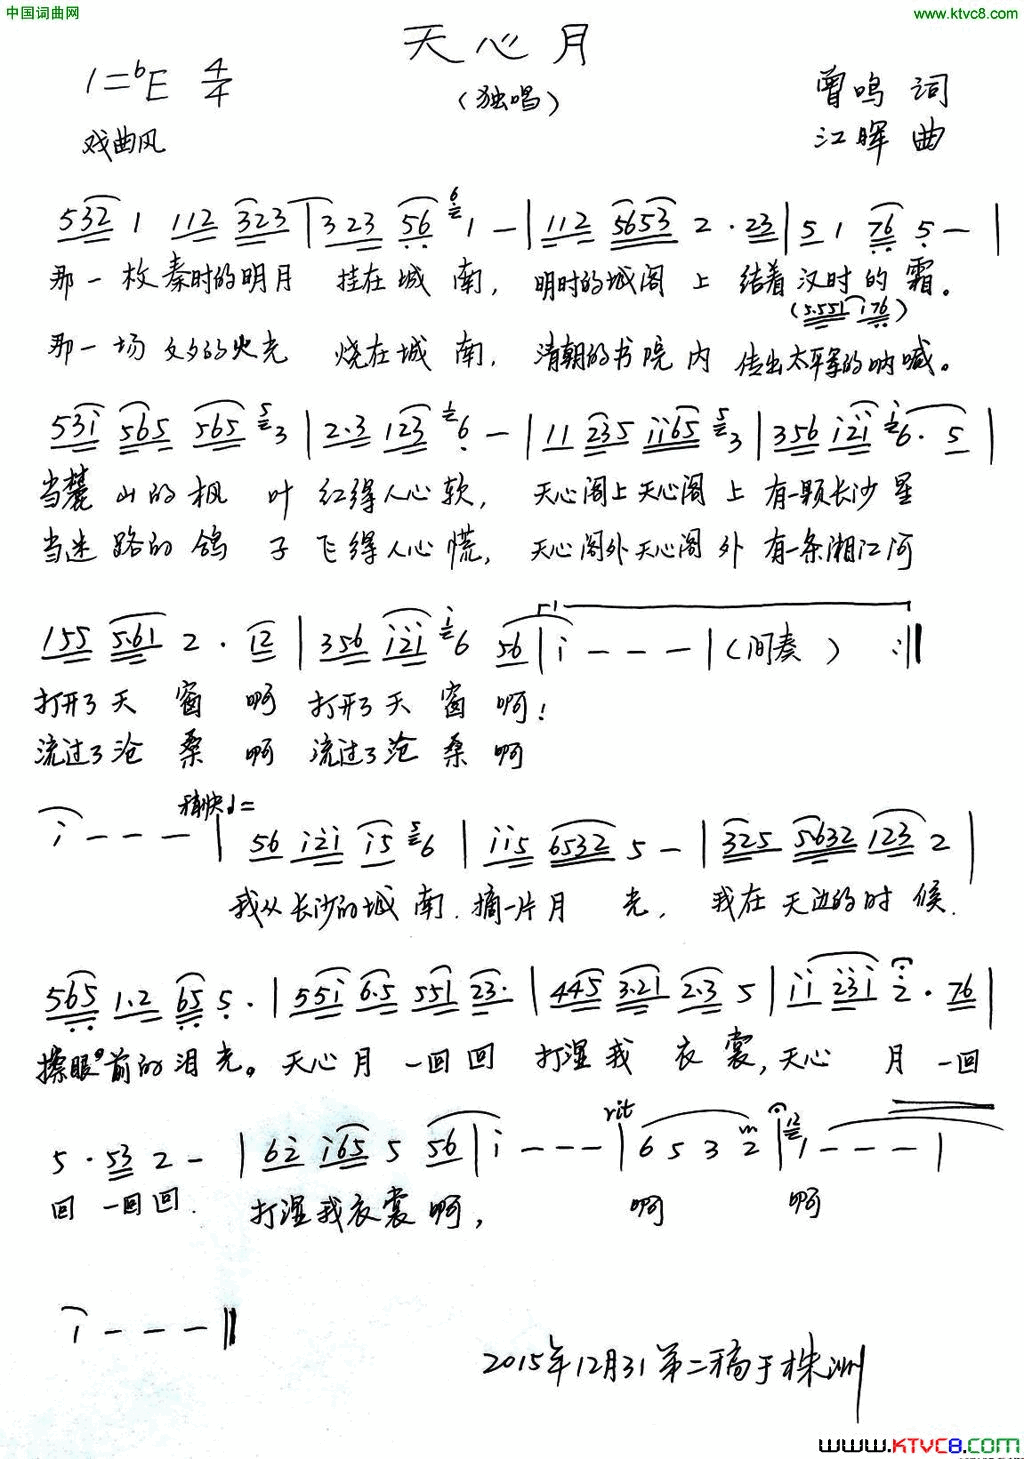 中国词曲网
www.ktvc8.com
天心月
(独唱)
1=bE 4/4
曾鸣 词
戏曲风
江晖 曲
532 1 112 323 | 323 56 6 1 - | 112 5653 2 · 23 | 5 1 76 5 - |
那一枚秦时的明月 挂在城南, 明时的城阁上 结着汉时的霜。
(5·551 i76)
那一场文夕的火光 烧在城南, 清朝的书院内 传出太平军的呐喊。
53i 565 565 5 3 | 2·3 123 1 6 - | 11 235 ii65 5 3 | 356 i2i i 6 · 5 |
当麓山的枫叶红得人心软, 天心阁上天心阁上有一颗长沙星
当迷路的鸽子飞得人心慌, 天心阁外天心阁外有一条湘江河
155 5·61 2 · 12 | 356 i2i i 6 56 | i - - - | (间奏) :||
打开了天窗啊 打开了天窗啊!
流过了沧桑啊 流过了沧桑啊
i - - - | 稍快 ♩=
56 i2i i5 5 6 | ii5 6532 5 - | 325 5632 123 2 |
我从长沙的城南. 摘一片月光, 我在天边的时候.
565 1·2 65 5 · | 55i 6·5 551 23· | 445 3·21 2·3 5 | ii 23i 2 · 76 |
擦眼前的泪光。天心月一回回 打湿我衣裳,天心月一回
rit
5 · 53 2 - | 62 i65 5 56 | i - - - | 6 5 3 2 | 12 1 - - - |
回一回回. 打湿我衣裳啊, 啊 啊
i - - - ||
2015年12月31第二稿于株洲
www.KTVC8.com